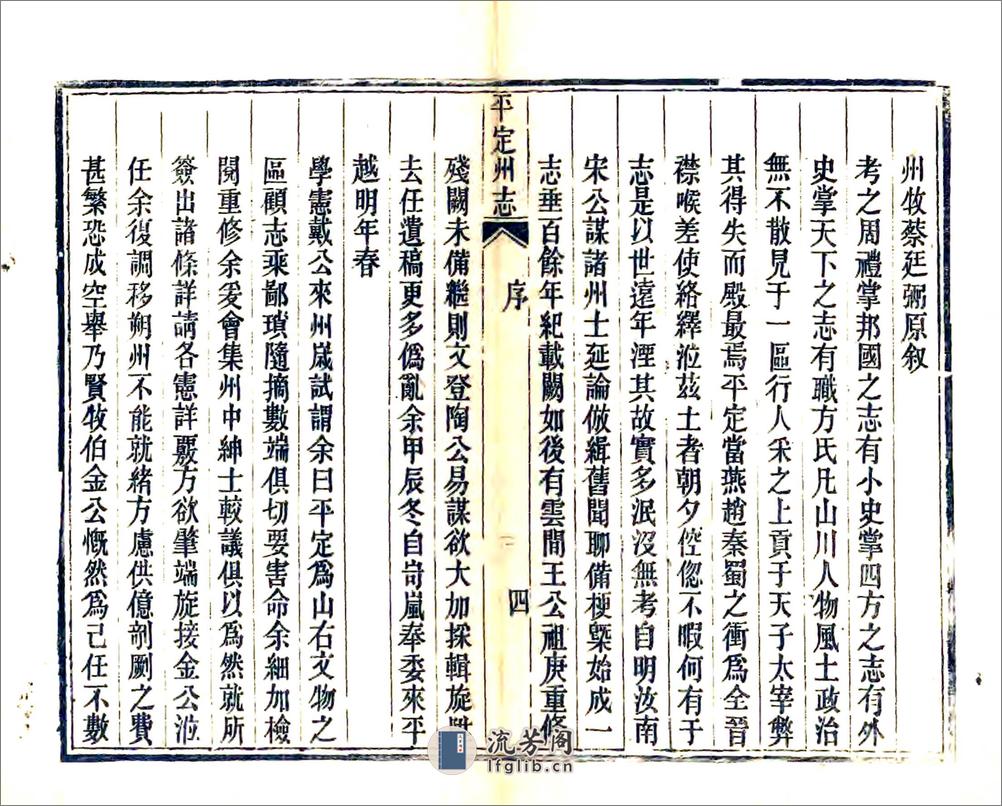 州牧蔡廷弼原叙
考之周禮掌邦國之志有小史掌四方之志有外
史掌天下之志有職方氏凡山川人物風土政治
無不散見于一區行人采之上貢于天子太宰弊
其得失而殿最焉平定當燕趙秦蜀之衝為全晉
襟喉差使絡繹涖茲土者朝夕倥偬不暇何有于
志是以世遠年湮其故實多泯沒無考自明汝南
宋公謀諸州士延論倣緝舊聞聊備梗槩始成一
志垂百餘年紀載闕如後有雲間王公祖庚重修
平定州志 序 四
殘闕未備繼則文登陶公易謀欲大加採輯旋
去任遺稿更多僞亂余甲辰冬自岢嵐奉委來平
越明年春
學憲戴公來州歲試謂余曰平定為山右文物之
區顧志乘鄙瑣隨摘數端俱切要害命余細加檢
閱重修余爰會集州中紳士較議俱以為然就所
簽出諸條詳請各憲詳覈方欲肇端旋接金公涖
任余復調移朔州不能就緒方慮供億剞劂之費
甚繁恐成空舉乃賢牧伯金公慨然為己任不數
流芳閣
lfglib.cn